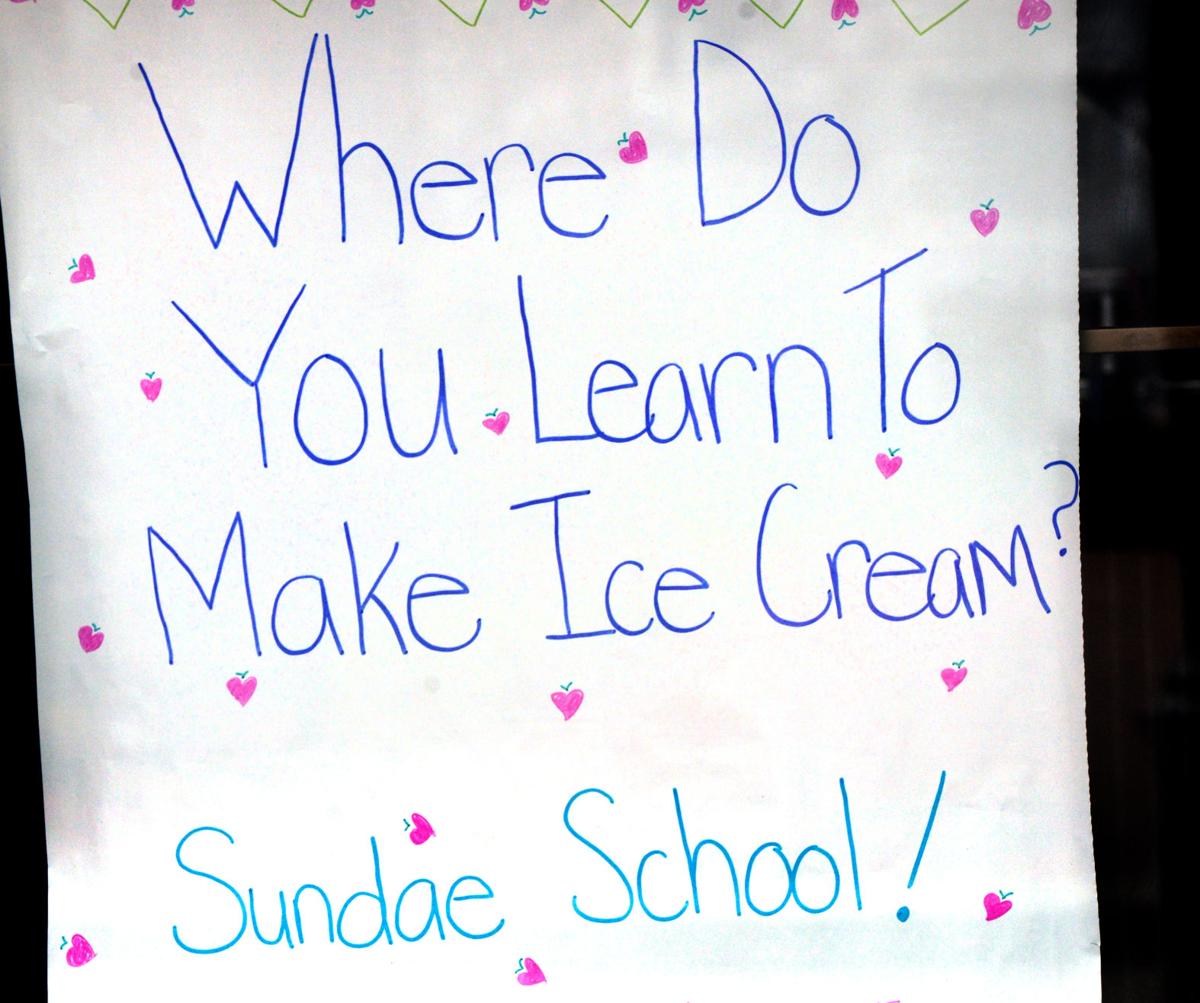 Where Do
You Learn To
Make Ice Cream?
Sundae School!